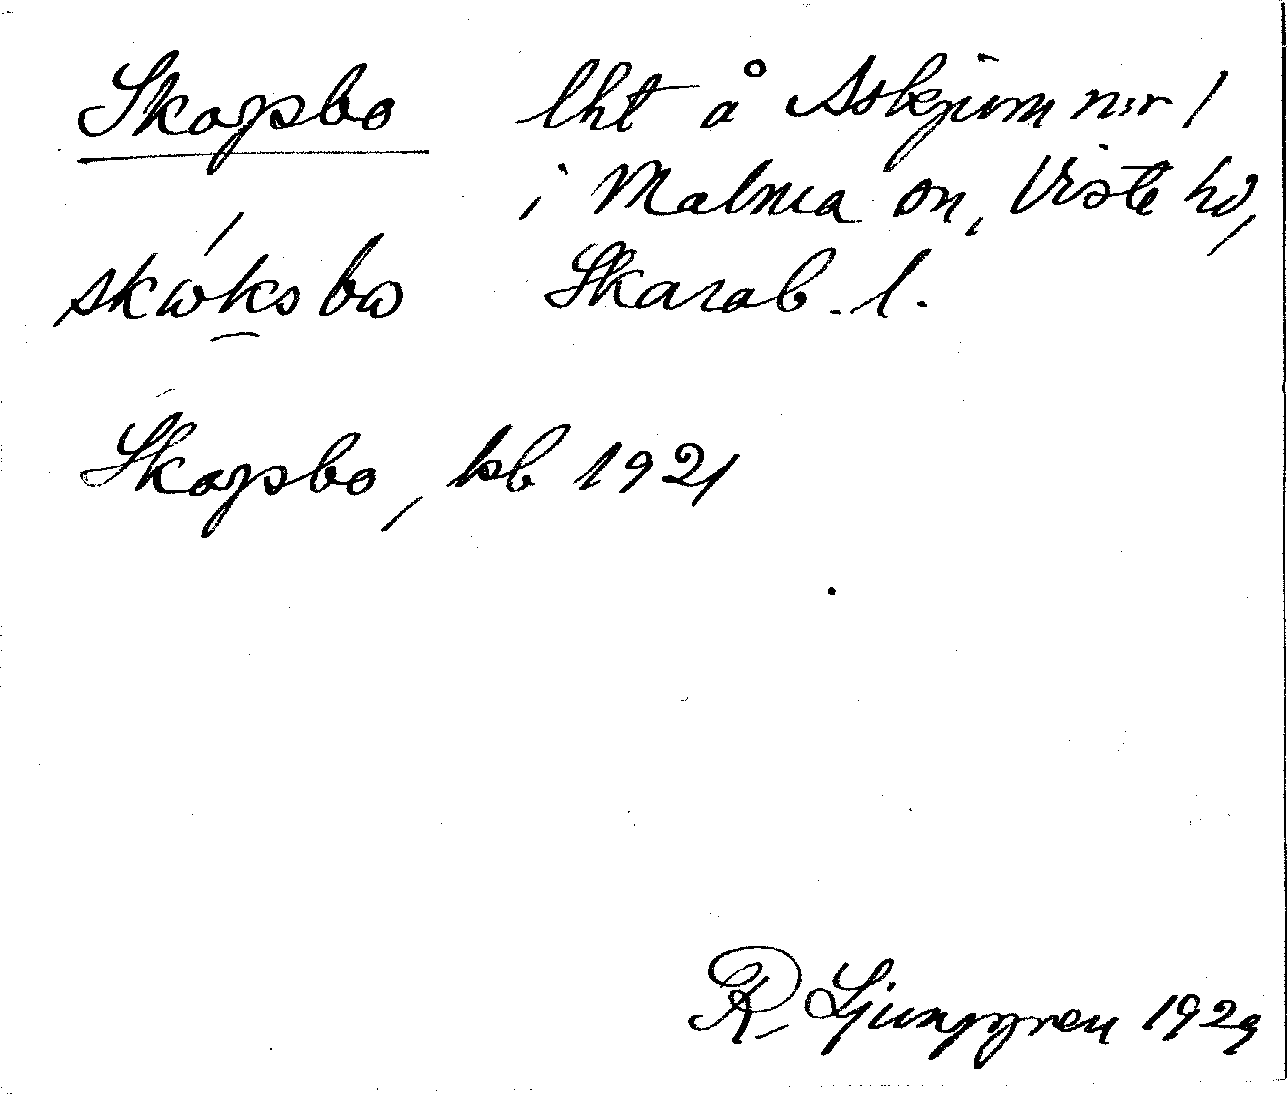 Skogsbo lht å Askjum n:r 1
i Malma sn, Viste hd,
skωksbω Skarab. l.
Skogsbo, kb 1921
R. Ljunggren 1929